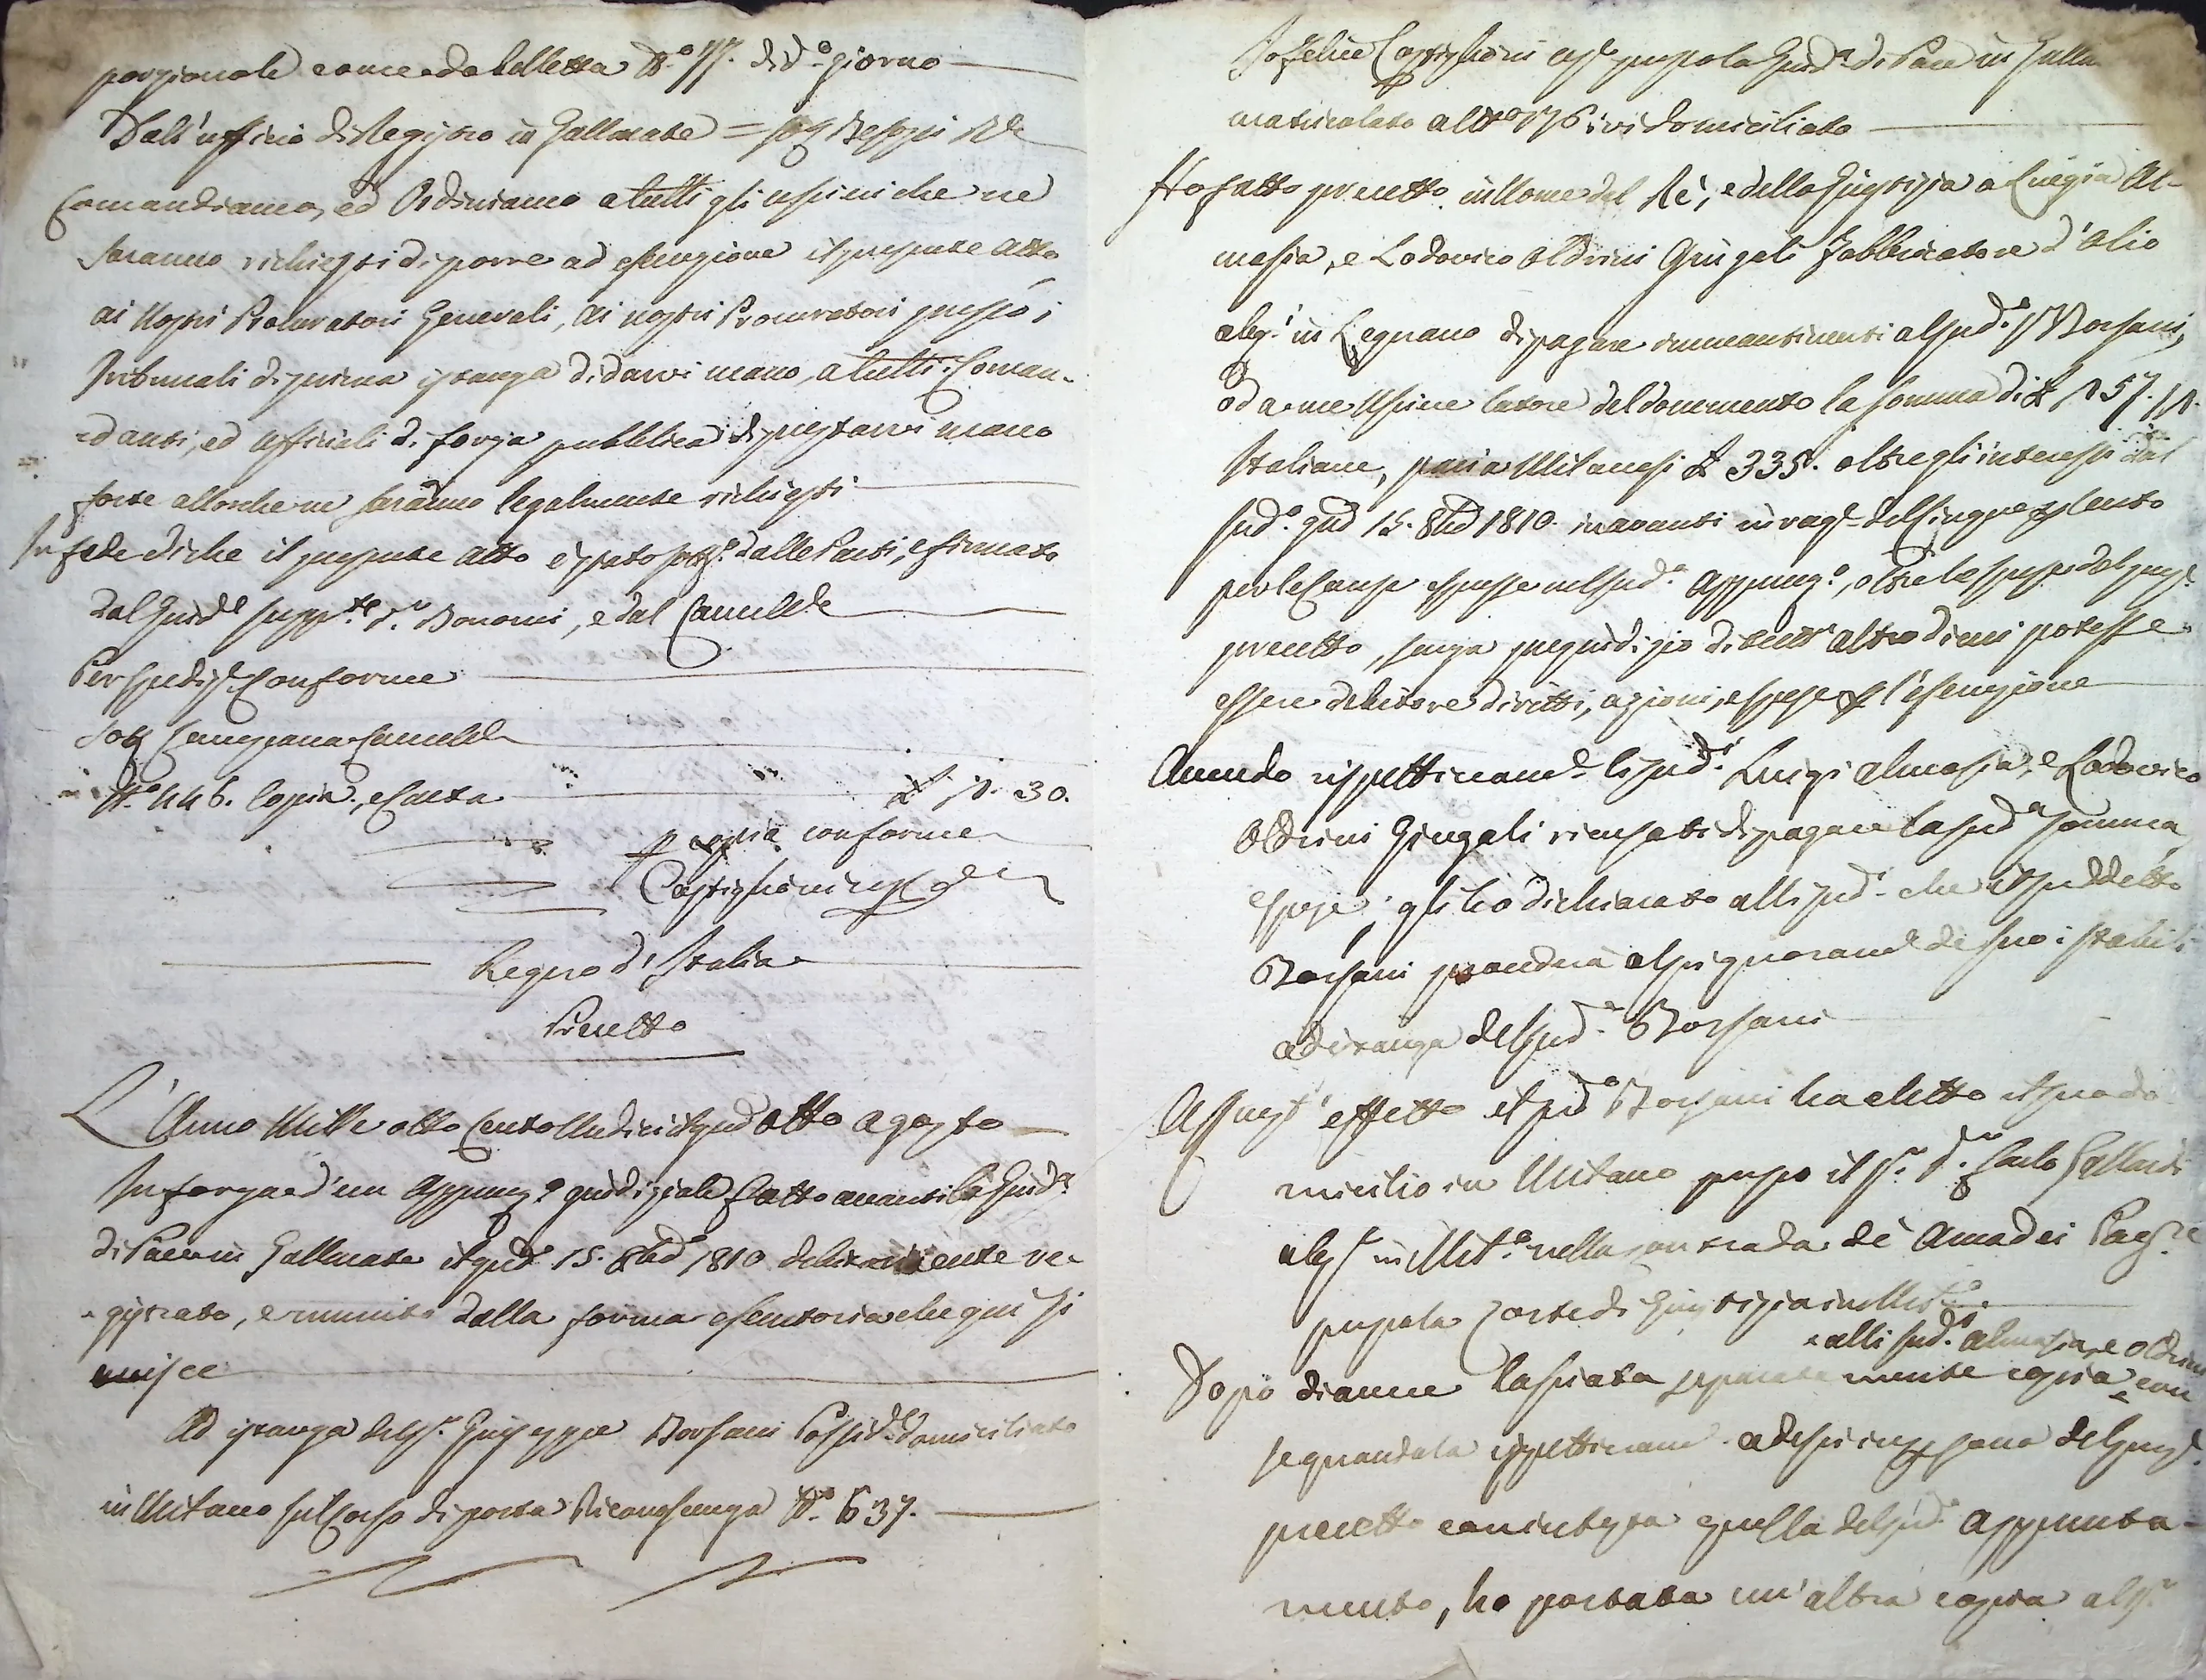 porzionale come da bolletta N.º 77. di d.º giorno
Dall'ufficio di Registro in Gallarate = Sott Besozzi R.e
Comandiamo, ed Ordiniamo a tutti gli uscieri che ne
saranno richiesti di porre ad esecuzione il presente atto
ai Nostri Procuratori Generali, ai nostri Procuratori presso i
Tribunali di prima istanza di darvi mano, a tutti i Coman-
danti, ed Ufficiali di forza pubblica di prestarvi mano
forte allorchè ne saranno legalmente richiesti
In fede di che il presente atto è stato sott.º dalle Parti, e firmato
dal Giud.e supp.te S.r Bonomi, e dal Cancell.e
Per spediz.e Conforme
Sott Cancell.e
N.º 446. Copia, e Carta £ 1. 30.
p copia conforme
Castiglioni usc.e
Regno d'Italia
Precetto
L'Anno Mille otto Cento Undici il gno otto agosto
In forza d'un Appunt.º giudiziale fatto avanti la Giud.a
di Pace in Gallarate il gno 15. 8bre 1810 debitamente re-
gistrato, e munito della forma esecutoria che qui si
unisce
Ad istanza del S.r Giuseppe Borsani Possid.e domiciliato
in Milano sul Corso di porta Riconoscenza N.º 637.
Io Felice Castiglioni usc.e presso la Giud.a di Pace in Galla
matricolato al N.º 176 ivi domiciliato
Ho fatto precetto in Nome del Rè, e della Giustizia a Luigia Al-
masia, e Lodovico Oldrini Giugali Fabbricatore d'Olio
abit.i in Legnano di pagare immantinenti al sud.º S.r Borsani,
od a me Usciere latore del documento la somma di £ 257. 11.
Italiane, pari a Milanesi £ 335. oltre gli interessi dal
sud.º gno 15. 8bre 1810. in avanti in rag.e del Cinque p Cento
per le Cause espresse nel sud.º Appunt.º, oltre le spese del pres.e
precetto, senza pregiudizio di tutt'altro di cui potesse
essere debitore diritti, azioni, e spese p l'esecuzione
Avendo rispettivam.e li sud.i Luigi almasia, e Lodovico
Oldrini Giugali ricusato di pagare la sud.a somma
e spese; gli ho dichiarato alli sud.i che il suddetto
Borsani procederà al pignoram.e de suoi stabili
ad istanza del sud.º Borsani
A quest'effetto il sud.º Borsani ha eletto il suo do-
micilio in Milano presso il S.r D.r Carlo Gallardi
abit.e in Mil.º nella contrada de' Amadei Pat.re
presso la Corte di Giustizia in Mil.º
alli sud.i almasia, e Oldrini
Dopo di aver lasciata separatamente copia con
segnandola rispettivam.e ad essi in persona del pres.e
precetto con intera quella del sud.º Appunta-
mento, ho portata un'altra copia al S.r